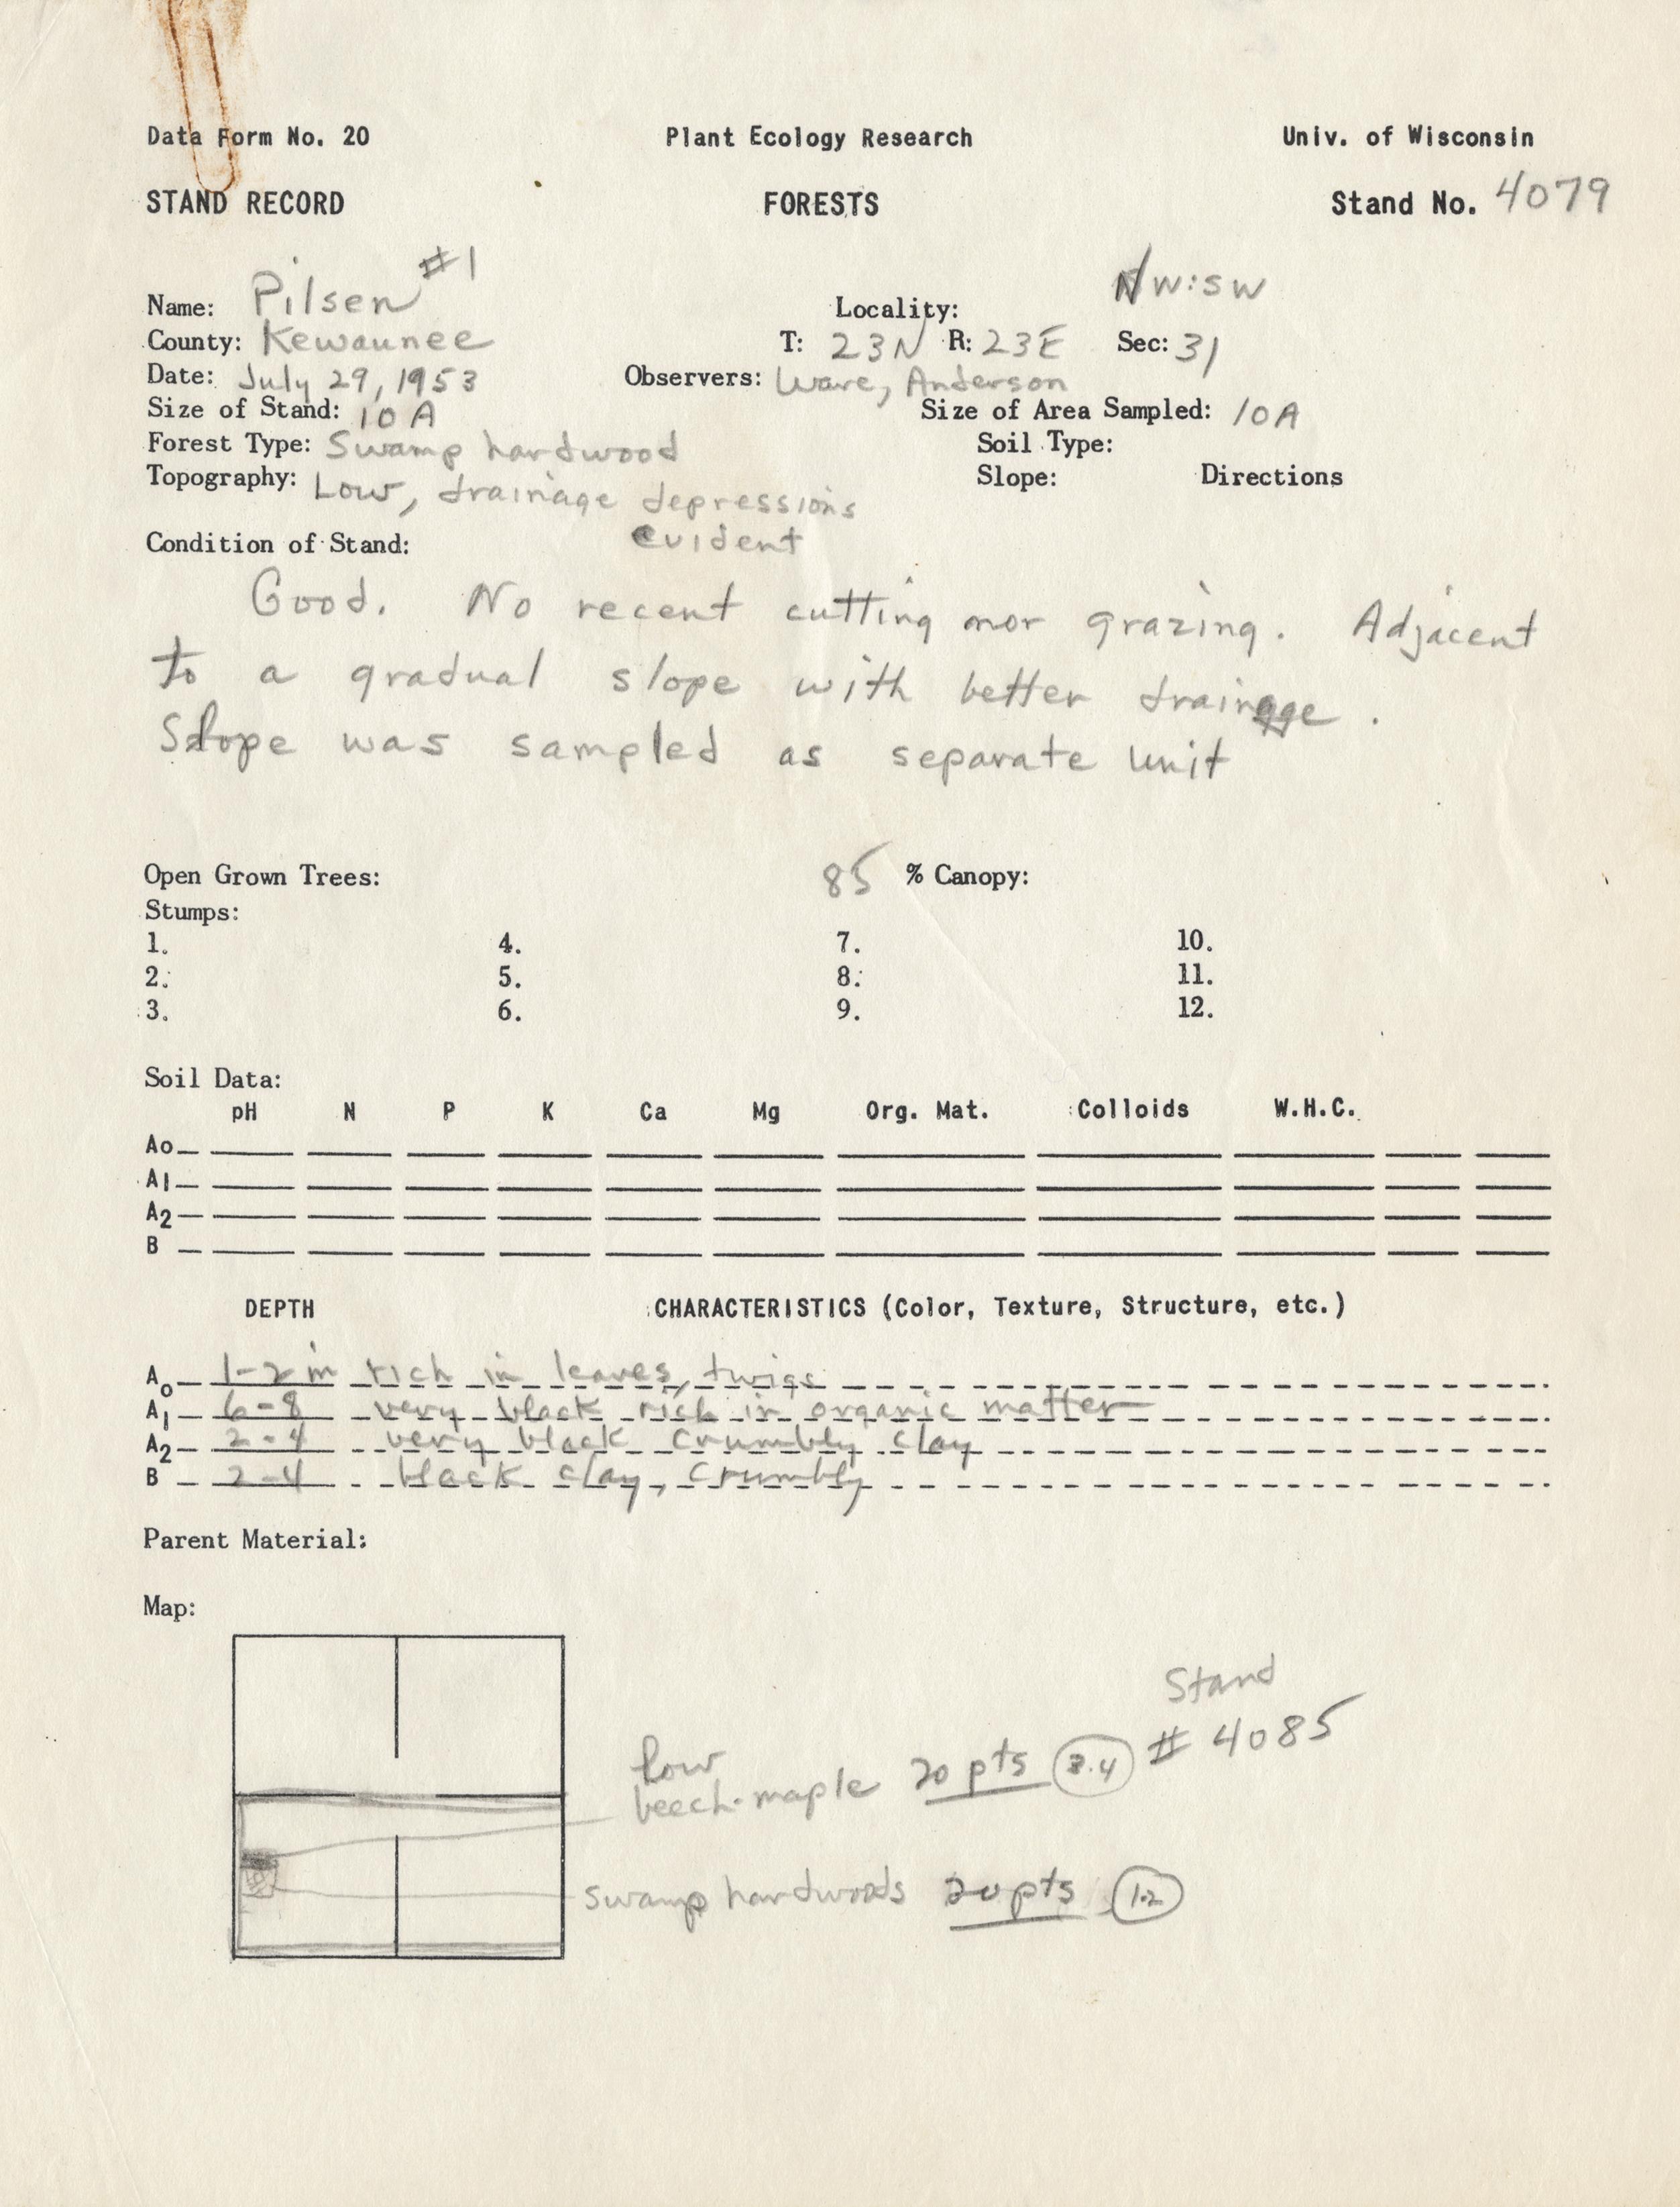 Data Form No. 20 Plant Ecology Research Univ. of Wisconsin
STAND RECORD FORESTS Stand No. 4079
Name: Pilsen #1 Locality: NW:SW
County: Kewaunee T: 23N R: 23E Sec: 31
Date: July 29, 1953 Observers: Ware, Anderson
Size of Stand: 10 A Size of Area Sampled: 10A
Forest Type: Swamp hardwood Soil Type:
Topography: Low, drainage depressions Slope: Directions
evident
Condition of Stand:
Good. No recent cutting nor grazing. Adjacent
to a gradual slope with better drainage.
Slope was sampled as separate unit
Open Grown Trees: 85 % Canopy:
Stumps:
1. 4. 7. 10.
2. 5. 8. 11.
3. 6. 9. 12.
Soil Data:
pH N P K Ca Mg Org. Mat. Colloids W.H.C.
Ao
A1
A2
B
DEPTH CHARACTERISTICS (Color, Texture, Structure, etc.)
Ao 1-2 in rich in leaves, twigs
A1 6-8 very black rich in organic matter
A2 2-4 very black crumbly clay
B 2-4 black clay, crumbly
Parent Material:
Map:
Stand
# 4085
low
beech-maple 20 pts 3.4
swamp hardwoods 20 pts 1.2